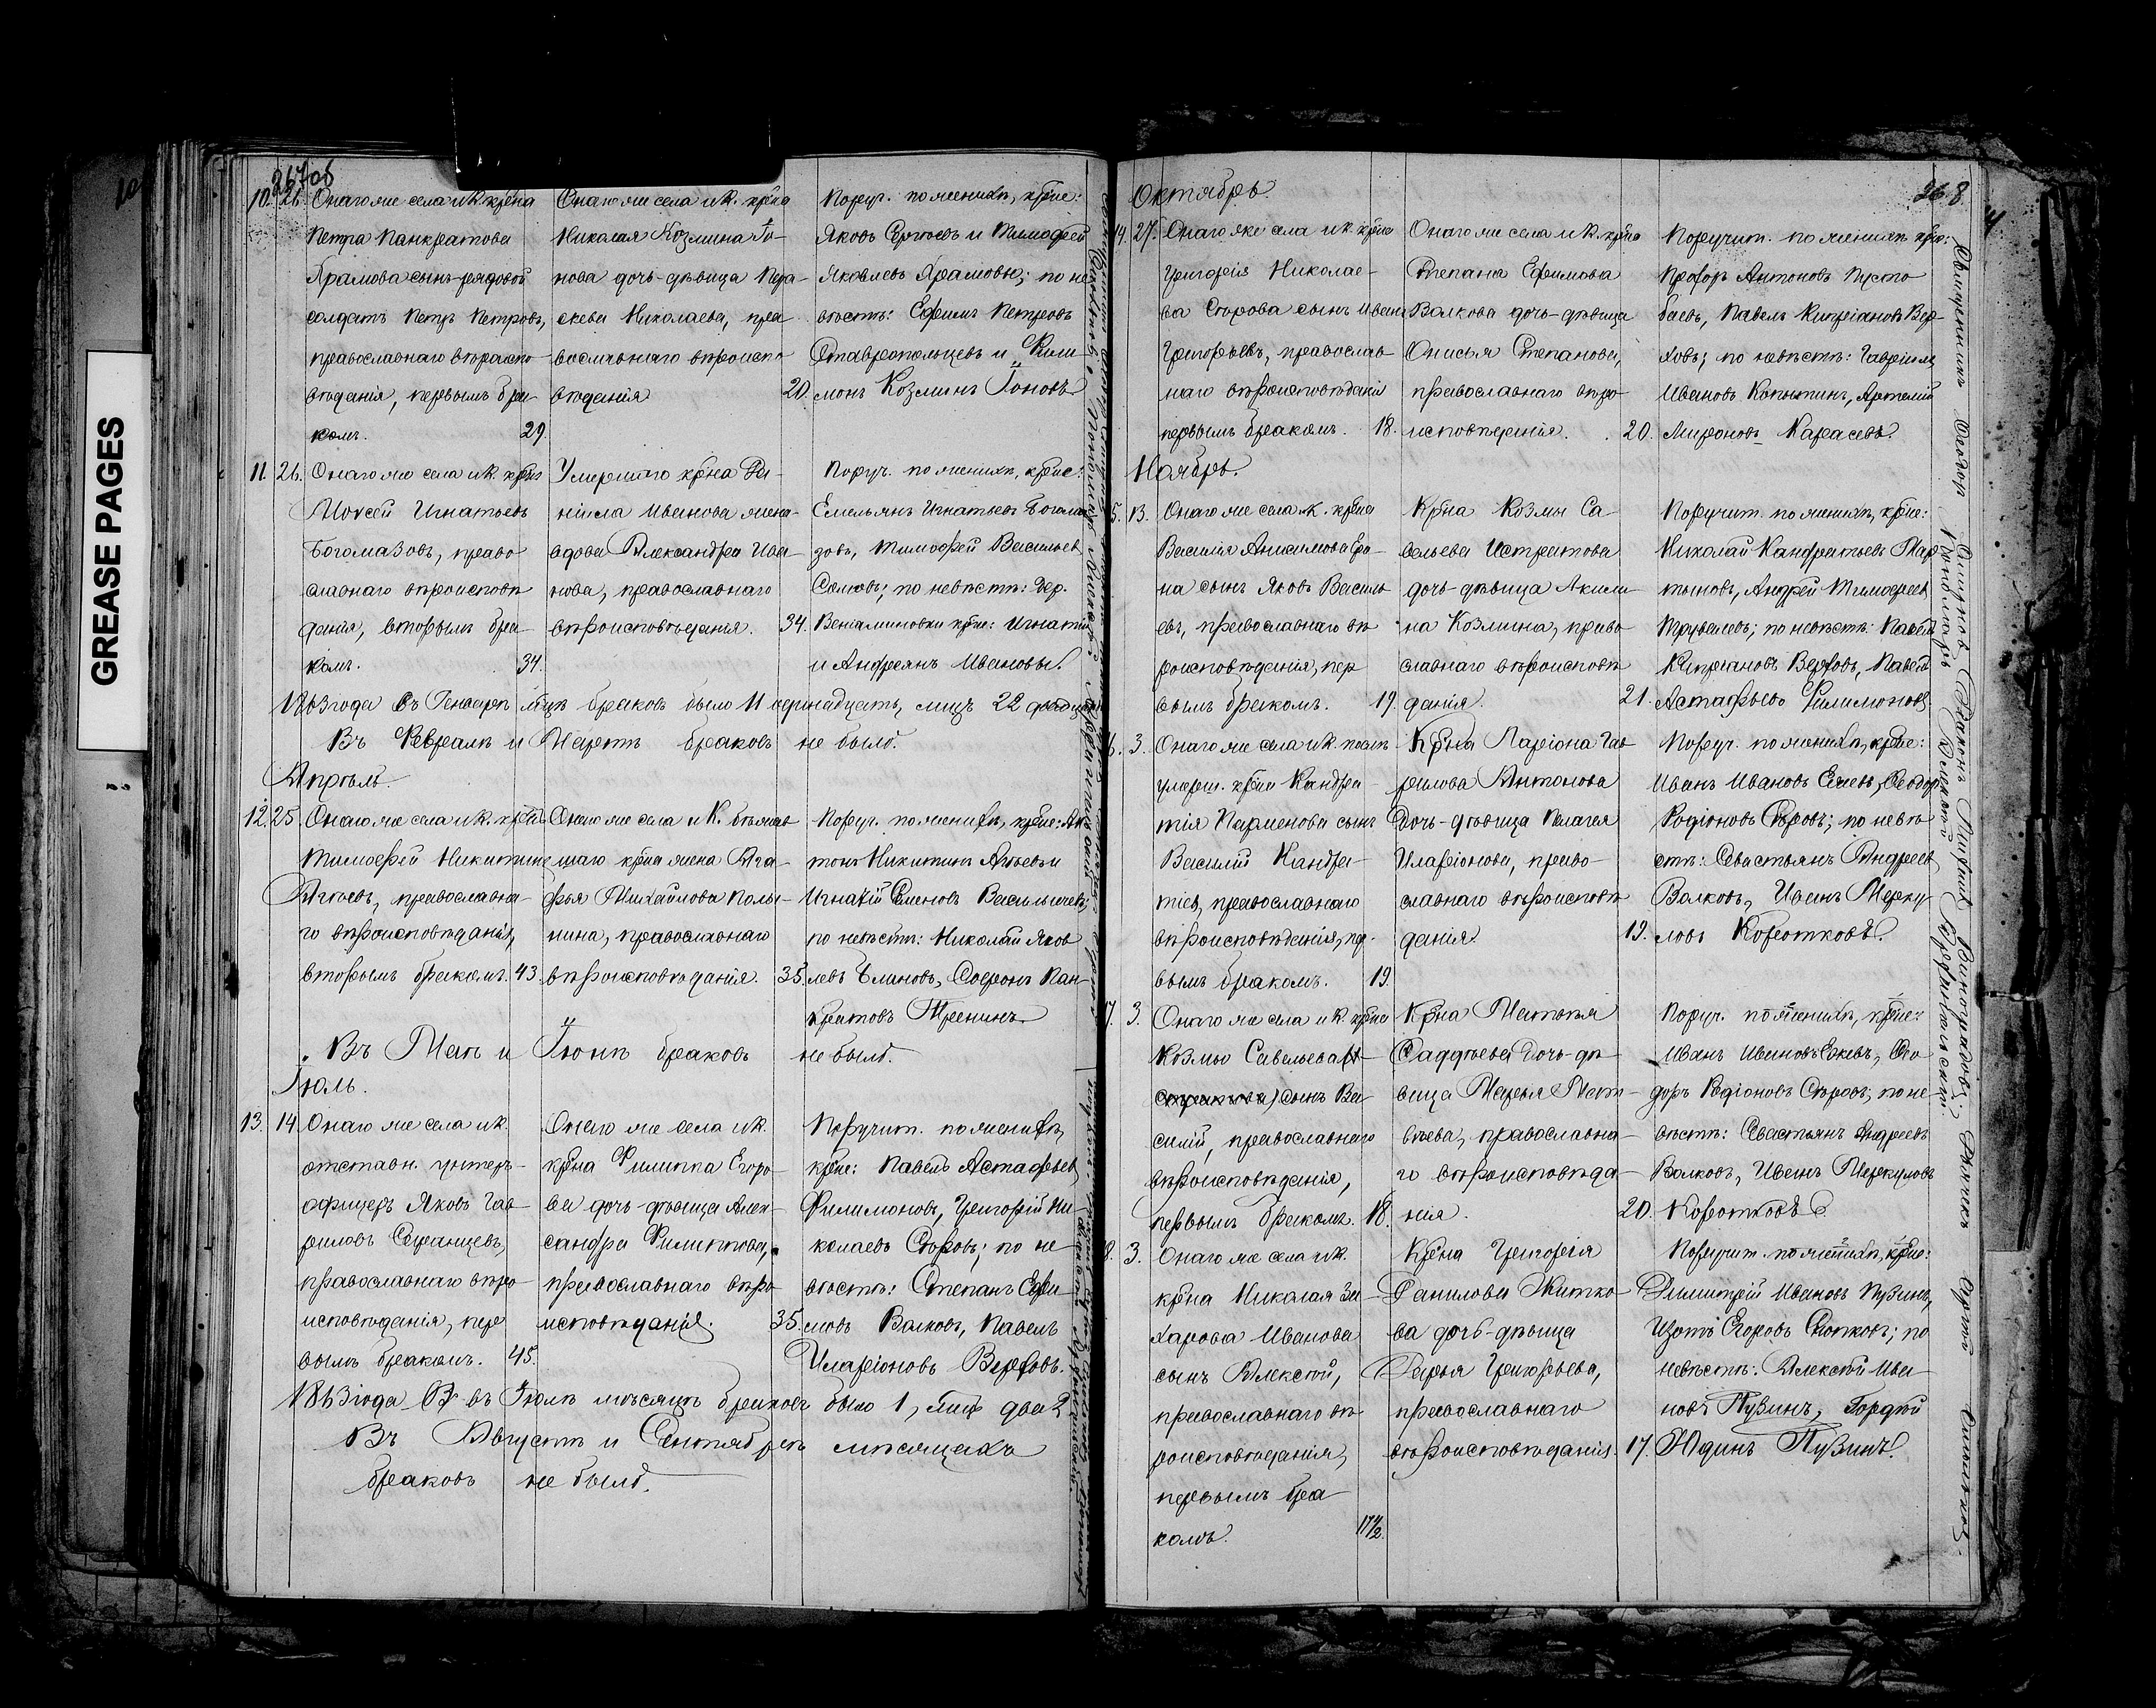 GREASE PAGES
267 об
10. 26. Онаго же села и к. крѣна
Петра Панкратова
Храмова сынъ рядовой
солдатъ Петръ Петровъ,
православнаго вѣроиспо-
вѣданія, первымъ бра-
комъ. 29.
Онаго же села и к. крѣна
Николая Козмина Го-
нова дочь-дѣвица Пара-
скева Николаева, пра
вославнаго вѣроиспо
вѣданія 20.
Поруч. по женихѣ, крѣне:
Яковъ Сергѣевъ и Тимофей
Яковлевъ Храмовы; по не
вѣстѣ: Ефимъ Петровъ
Ставропольцевъ и Фили
монъ Козминъ Гоновъ
11. 26. Онаго же села и к. крѣн
Мовсей Игнатьевъ
Богомазовъ, право
славнаго вѣроисповѣ
данія, вторымъ бра
комъ. 34.
Умершаго крѣна Да-
ніила Иванова жена-
вдова Александра Ива
нова, православнаго
вѣроисповѣданія. 34.
Поруч. по женихѣ, крѣне:
Емельянъ Игнатьевъ Богома
зовъ, Тимофей Васильев
по невѣстѣ: дер.
Веніаминовки крѣне: Игнатій
и Андреянъ Ивановы.
1863 года въ Генварѣ мѣцѣ браковъ было 11 одинадцать, лицъ 22 двадцать
Въ Февралѣ и Мартѣ браковъ не было.
Апрѣль.
12. 25. Онаго же села и к. крѣн
Тимофей Никитинъ
Агѣевъ, православна-
го вѣроисповѣданія,
вторымъ бракомъ. 43.
Онаго же села и к. бѣжав
шаго крѣна жена Ага-
фья Михайлова
православнаго
вѣроисповѣданія. 35.
Поруч. по женихѣ, крѣне: Ан
тонъ Никитинъ Агѣевъ и
Игнатій Семеновъ Васильичевъ;
по невѣстѣ: Николай Яков
левъ Блиновъ, Софронъ Пан-
кратовъ Тренинъ
Въ Маѣ и Іюнѣ браковъ не было.
Іюль.
13. 14. Онаго же села и к.
отставн. унтеръ-
офицеръ Яковъ Гав
риловъ
православнаго вѣро
исповѣданія, пер
вымъ бракомъ. 45.
Онаго же села и к.
крѣна Филиппа Егоро-
ва дочь-дѣвица Алек-
сандра Филиппова,
православнаго вѣро
исповѣданія. 35.
Поручит. по женихѣ,
крѣне: Павелъ Астафьев
Филимоновъ, Григорій Ни
колаевъ Егоровъ; по не
вѣстѣ: Степанъ Ефи
мовъ Волковъ, Павелъ
Иларіоновъ Верховъ.
1863 года въ Іюлѣ мѣсяцѣ браковъ было 1, лицъ два 2
Въ Августѣ и Сентябрѣ мѣсяцахъ
браковъ не было.
268
Октябрь.
14. 27. Онаго же села и к. крѣна
Григорія Николае-
ва Егорова сынъ Иванъ
Григорьевъ, православ
наго вѣроисповѣданія
первымъ бракомъ. 18.
Онаго же села и к. крѣна
Степана Ефимова
Волкова дочь-дѣвица
Онисья Степанова,
православнаго вѣро
исповѣданія. 20.
Поручит. по женихѣ крѣне:
Прохоръ Антоновъ Пусто
баевъ, Павелъ Кипріановъ Вер-
ховъ; по невѣстѣ: Гавріилъ
Ивановъ Копытинъ, Артемій
Мироновъ Карасевъ.
Ноябрь.
5. 13. Онаго же села и к. крѣна
Василія Анисимова Еро-
на сынъ Яковъ Василь
евъ, православнаго вѣ
роисповѣданія, пер
вымъ бракомъ. 19.
Крѣна Козмы Са
вельева Истратова
дочь-дѣвица Акили-
на Козмина, право
славнаго вѣроисповѣ
данія. 21.
Поручит. по женихѣ, крѣне:
Николай Кандратьевъ Мар
тыновъ, Андрей Тимофеев
по невѣстѣ: Павелъ
Кипріановъ Верховъ, Павелъ
Астафьевъ Филимоновъ
6. 3. Онаго же села и к. послѣ
умерш. крѣна Кандра-
тія Парменова сынъ
Василій Кандра-
тіев, православнаго
вѣроисповѣданія, пер-
вымъ бракомъ. 19.
Крѣна Ларіона Гав
рилова Антонова
дочь-дѣвица Пелагея
Иларіонова, право-
славнаго вѣроисповѣ
данія. 19.
Поруч. по женихѣ, крѣне:
Иванъ Ивановъ Ежевъ, Феодор
Родіоновъ Сѣровъ; по невѣ
стѣ: Севастьянъ Андреев
Волковъ, Иванъ Мерку
ловъ Коротковъ.
7. 3. Онаго же села и к. крѣна
Козмы Савельева (И-
стратова) сынъ Ва
силій, православнаго
вѣроисповѣданія,
первымъ бракомъ. 18.
Крѣна Матвѣя
Фаддѣева дочь-дѣ-
вица Марья Мат-
вѣева, православна-
го вѣроисповѣда-
нія. 20.
Поруч. по женихѣ, крѣне:
Иванъ Ивановъ Ежевъ, Фео
доръ Родіоновъ Сѣровъ; по не-
вѣстѣ: Севастьянъ Андреевъ
Волковъ, Иванъ Меркуловъ
Коротковъ
8. 3. Онаго же села и к.
крѣна Николая За
харова Иванова
сынъ Алексѣй,
православнаго вѣ
роисповѣданія,
первымъ бра
комъ. 17½.
Крѣна Григорія
Данилова Житко-
ва дочь-дѣвица
Дарья Григорьева,
православнаго
вѣроисповѣданія. 17.
Поручит. по женихѣ, крѣне:
Димитрій Ивановъ Пузинъ,
Изотъ Егоровъ по
невѣстѣ: Алексѣй Ива
новъ Пузинъ, Гордѣй
Юдинъ Пузинъ.
Священникъ Феодоръ